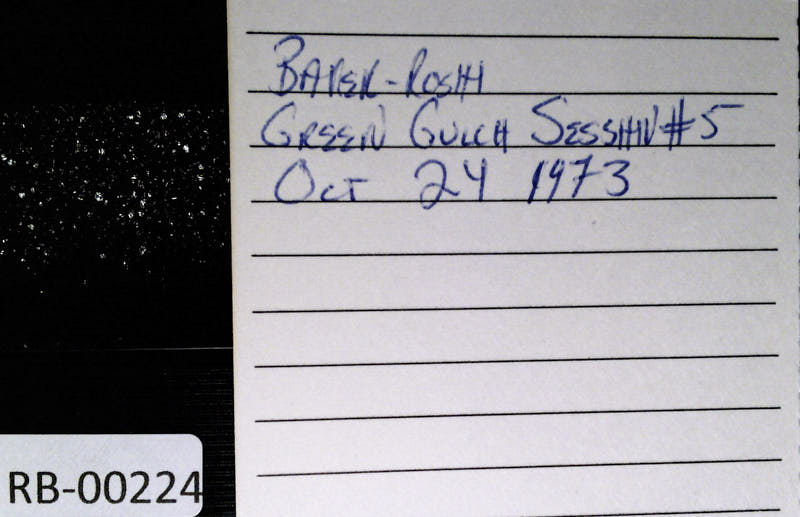 BAKER-ROSHI
GREEN GULCH SESSHIN #5
OCT 24 1973
RB-00224